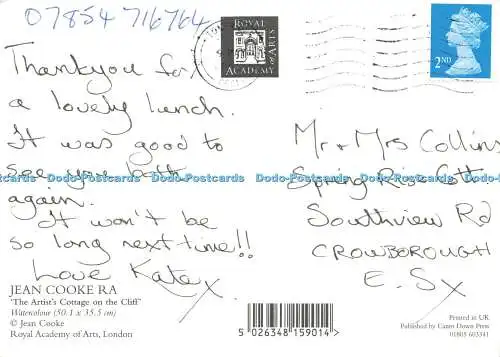 07854 716764
ROYAL
ACADEMY
OF ARTS
2ND
Thankyou for
a lovely lunch.
It was good to
see you both
again.
It won't be
so long next time!!
Love Kate x
Mr + Mrs Collins
Spring Rise Cott
Southview Rd
CROWBOROUGH
E. Sx
Dodo-Postcards Dodo-Postcards Dodo-Postcards Dodo-Postcards Dodo-Postcards
JEAN COOKE RA
'The Artist's Cottage on the Cliff'
Watercolour (50.1 x 35.5 cm)
© Jean Cooke
Royal Academy of Arts, London
5 026348 159014
Printed in UK
Published by Camo Down Press
01805 603341